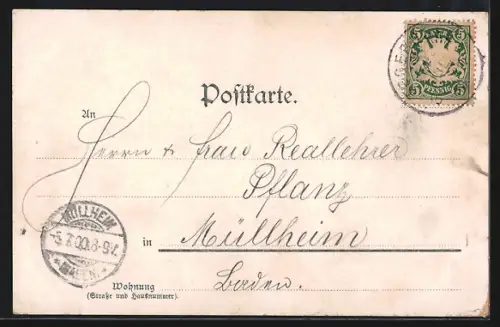 5 5
5 PFENNIG 5
Postkarte.
An
Herrn & Frau Reallehrer
Pflanz
MÜLLHEIM
5.7.00.8-9V.
*(BADEN)*
in Müllheim
Baden.
Wohnung
(Straße und Hausnummer).